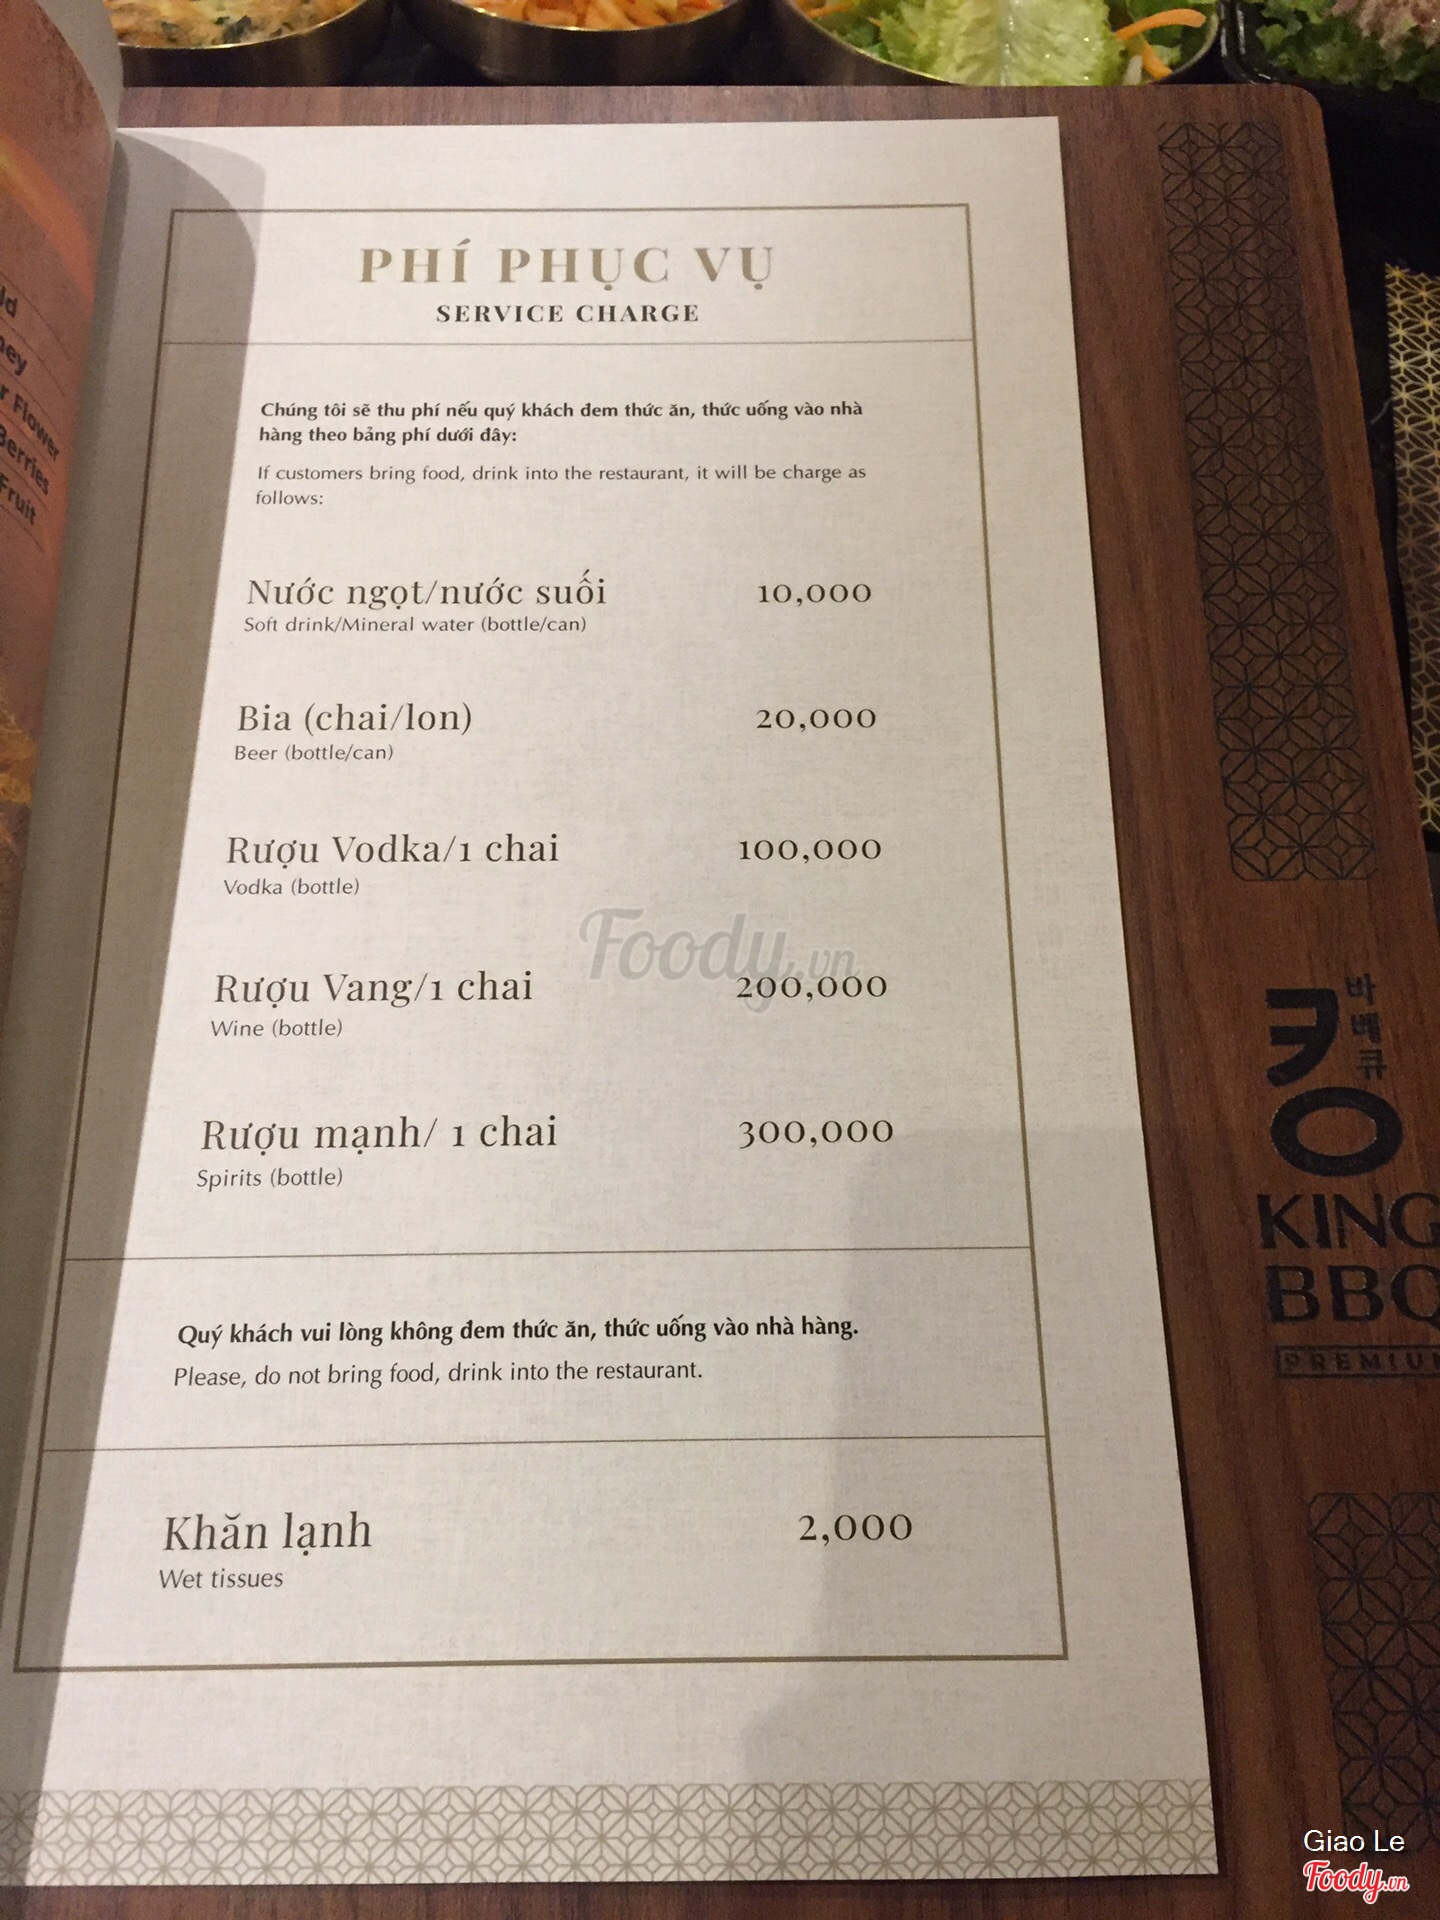 ld
ney
r Flower
Berries
Fruit
PHÍ PHỤC VỤ
SERVICE CHARGE
Chúng tôi sẽ thu phí nếu quý khách đem thức ăn, thức uống vào nhà
hàng theo bảng phí dưới đây:
If customers bring food, drink into the restaurant, it will be charge as
follows:
Nước ngọt/nước suối 10,000
Soft drink/Mineral water (bottle/can)
Bia (chai/lon) 20,000
Beer (bottle/can)
Rượu Vodka/1 chai 100,000
Vodka (bottle)
Foody.vn
Rượu Vang/1 chai 200,000
Wine (bottle)
Rượu mạnh/ 1 chai 300,000
Spirits (bottle)
Quý khách vui lòng không đem thức ăn, thức uống vào nhà hàng.
Please, do not bring food, drink into the restaurant.
Khăn lạnh 2,000
Wet tissues
바베큐
킹
KING
BBQ
PREMIUM
Giao Le
Foody.vn